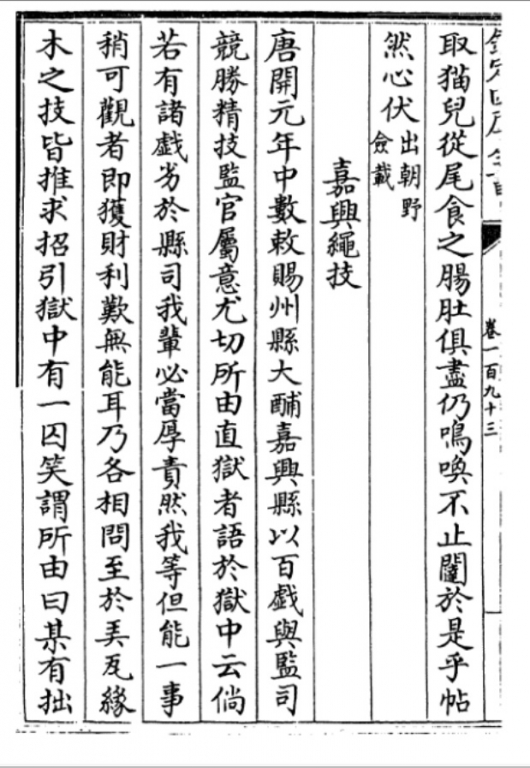 欽定四庫全書
卷一百九十三
取猫兒從尾食之腸肚俱盡仍鳴喚不止闥於是乎帖
然心伏出朝野
僉載
嘉興繩技
唐開元年中數敕賜州縣大酺嘉興縣以百戲與監司
競勝精技監官屬意尤切所由直獄者語於獄中云倘
若有諸戲劣於縣司我輩必當厚責然我等但能一事
稍可觀者即獲財利歎無能耳乃各相問至於弄瓦緣
木之技皆推求招引獄中有一囚笑謂所由曰某有拙